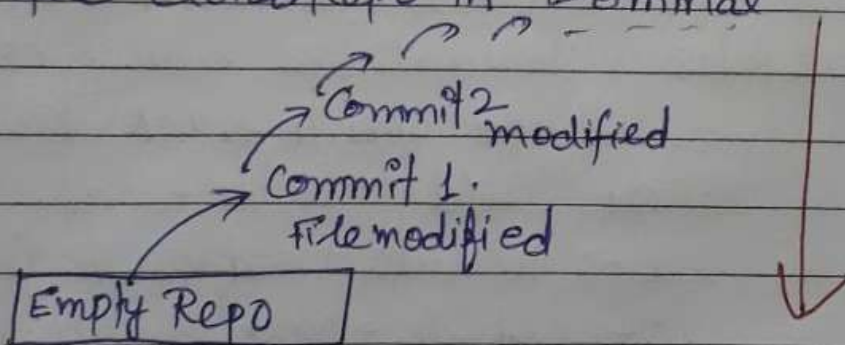 in Terminal
Commit 2
modified
Commit 1.
File modified
Empty Repo